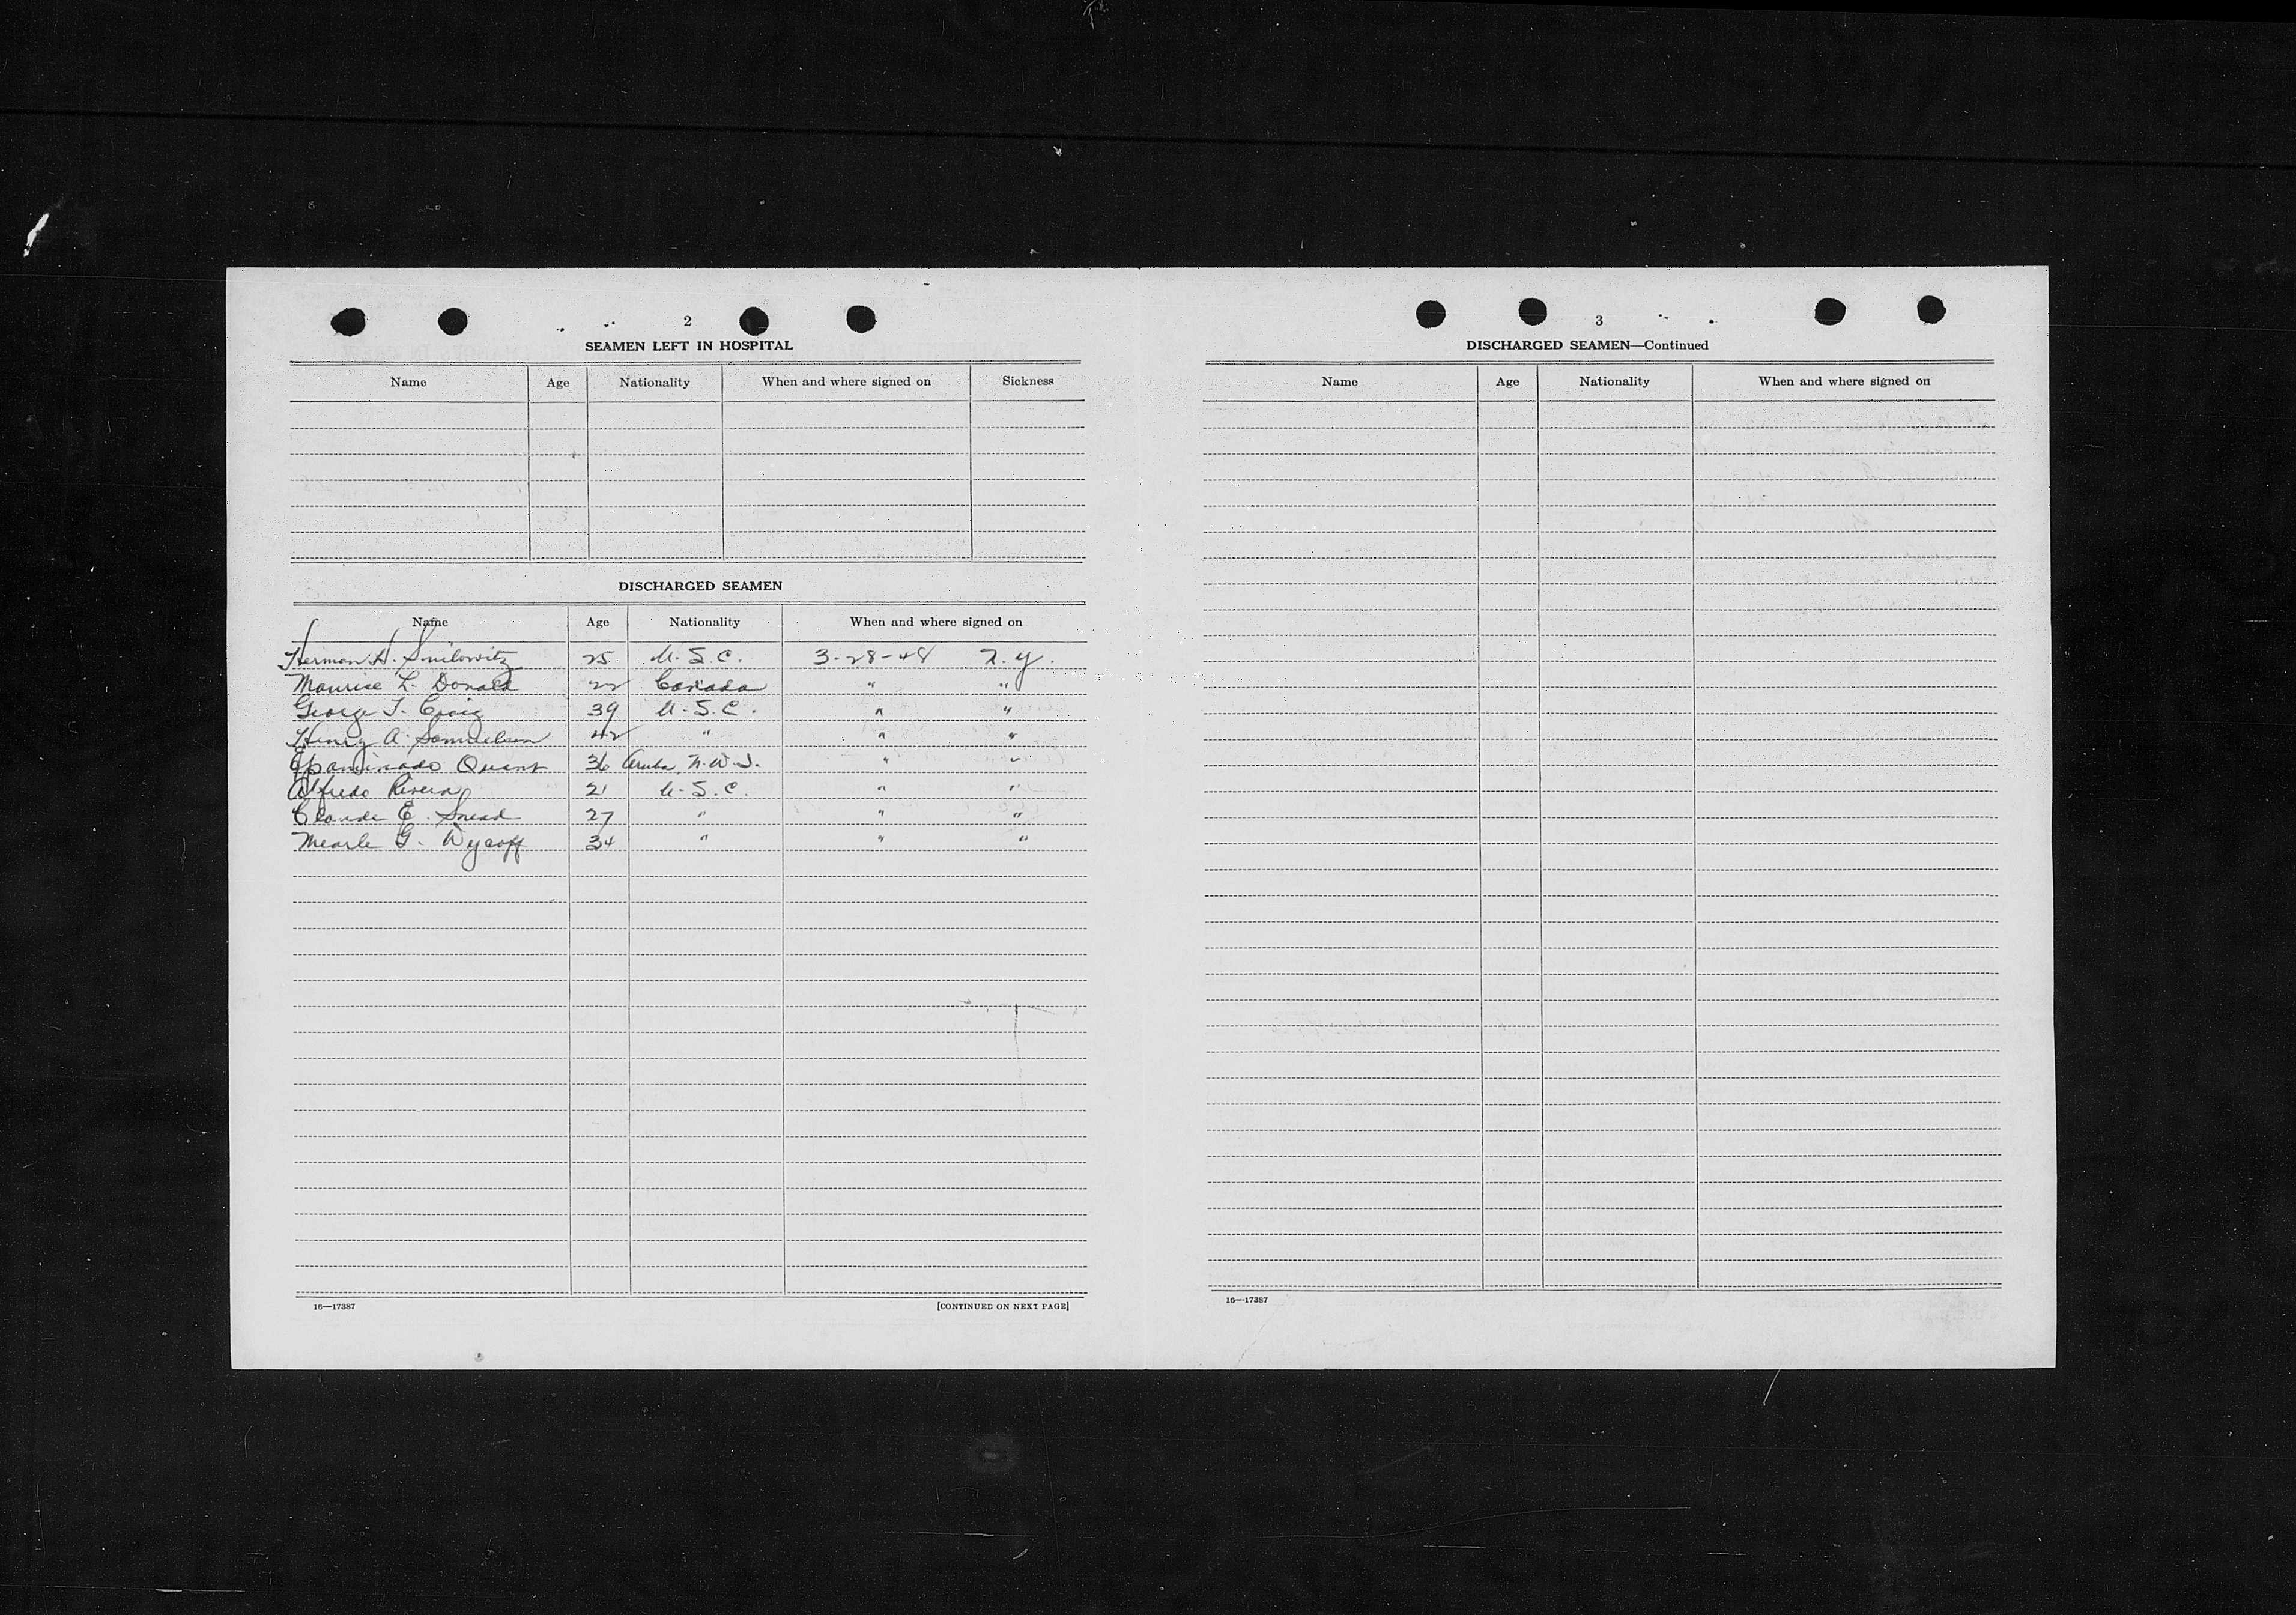 2
SEAMEN LEFT IN HOSPITAL
Name Age Nationality When and where signed on Sickness
DISCHARGED SEAMEN
Name Age Nationality When and where signed on
Herman H. Smilowitz 25 U.S.C. 3-28-48 N.Y.
Maurice L. Donald 22 Canada " "
George T. Craig 39 U.S.C. " "
Henry A. Samuelsen 42 " " "
Epaminado Quant 36 Aruba, N.W.I. " "
Alfredo Rivera 21 U.S.C. " "
Claude E. Snead 27 " " "
Mearle G. Wycoff 34 " " "
16—17387 [CONTINUED ON NEXT PAGE]
3
DISCHARGED SEAMEN—Continued
Name Age Nationality When and where signed on
16—17387